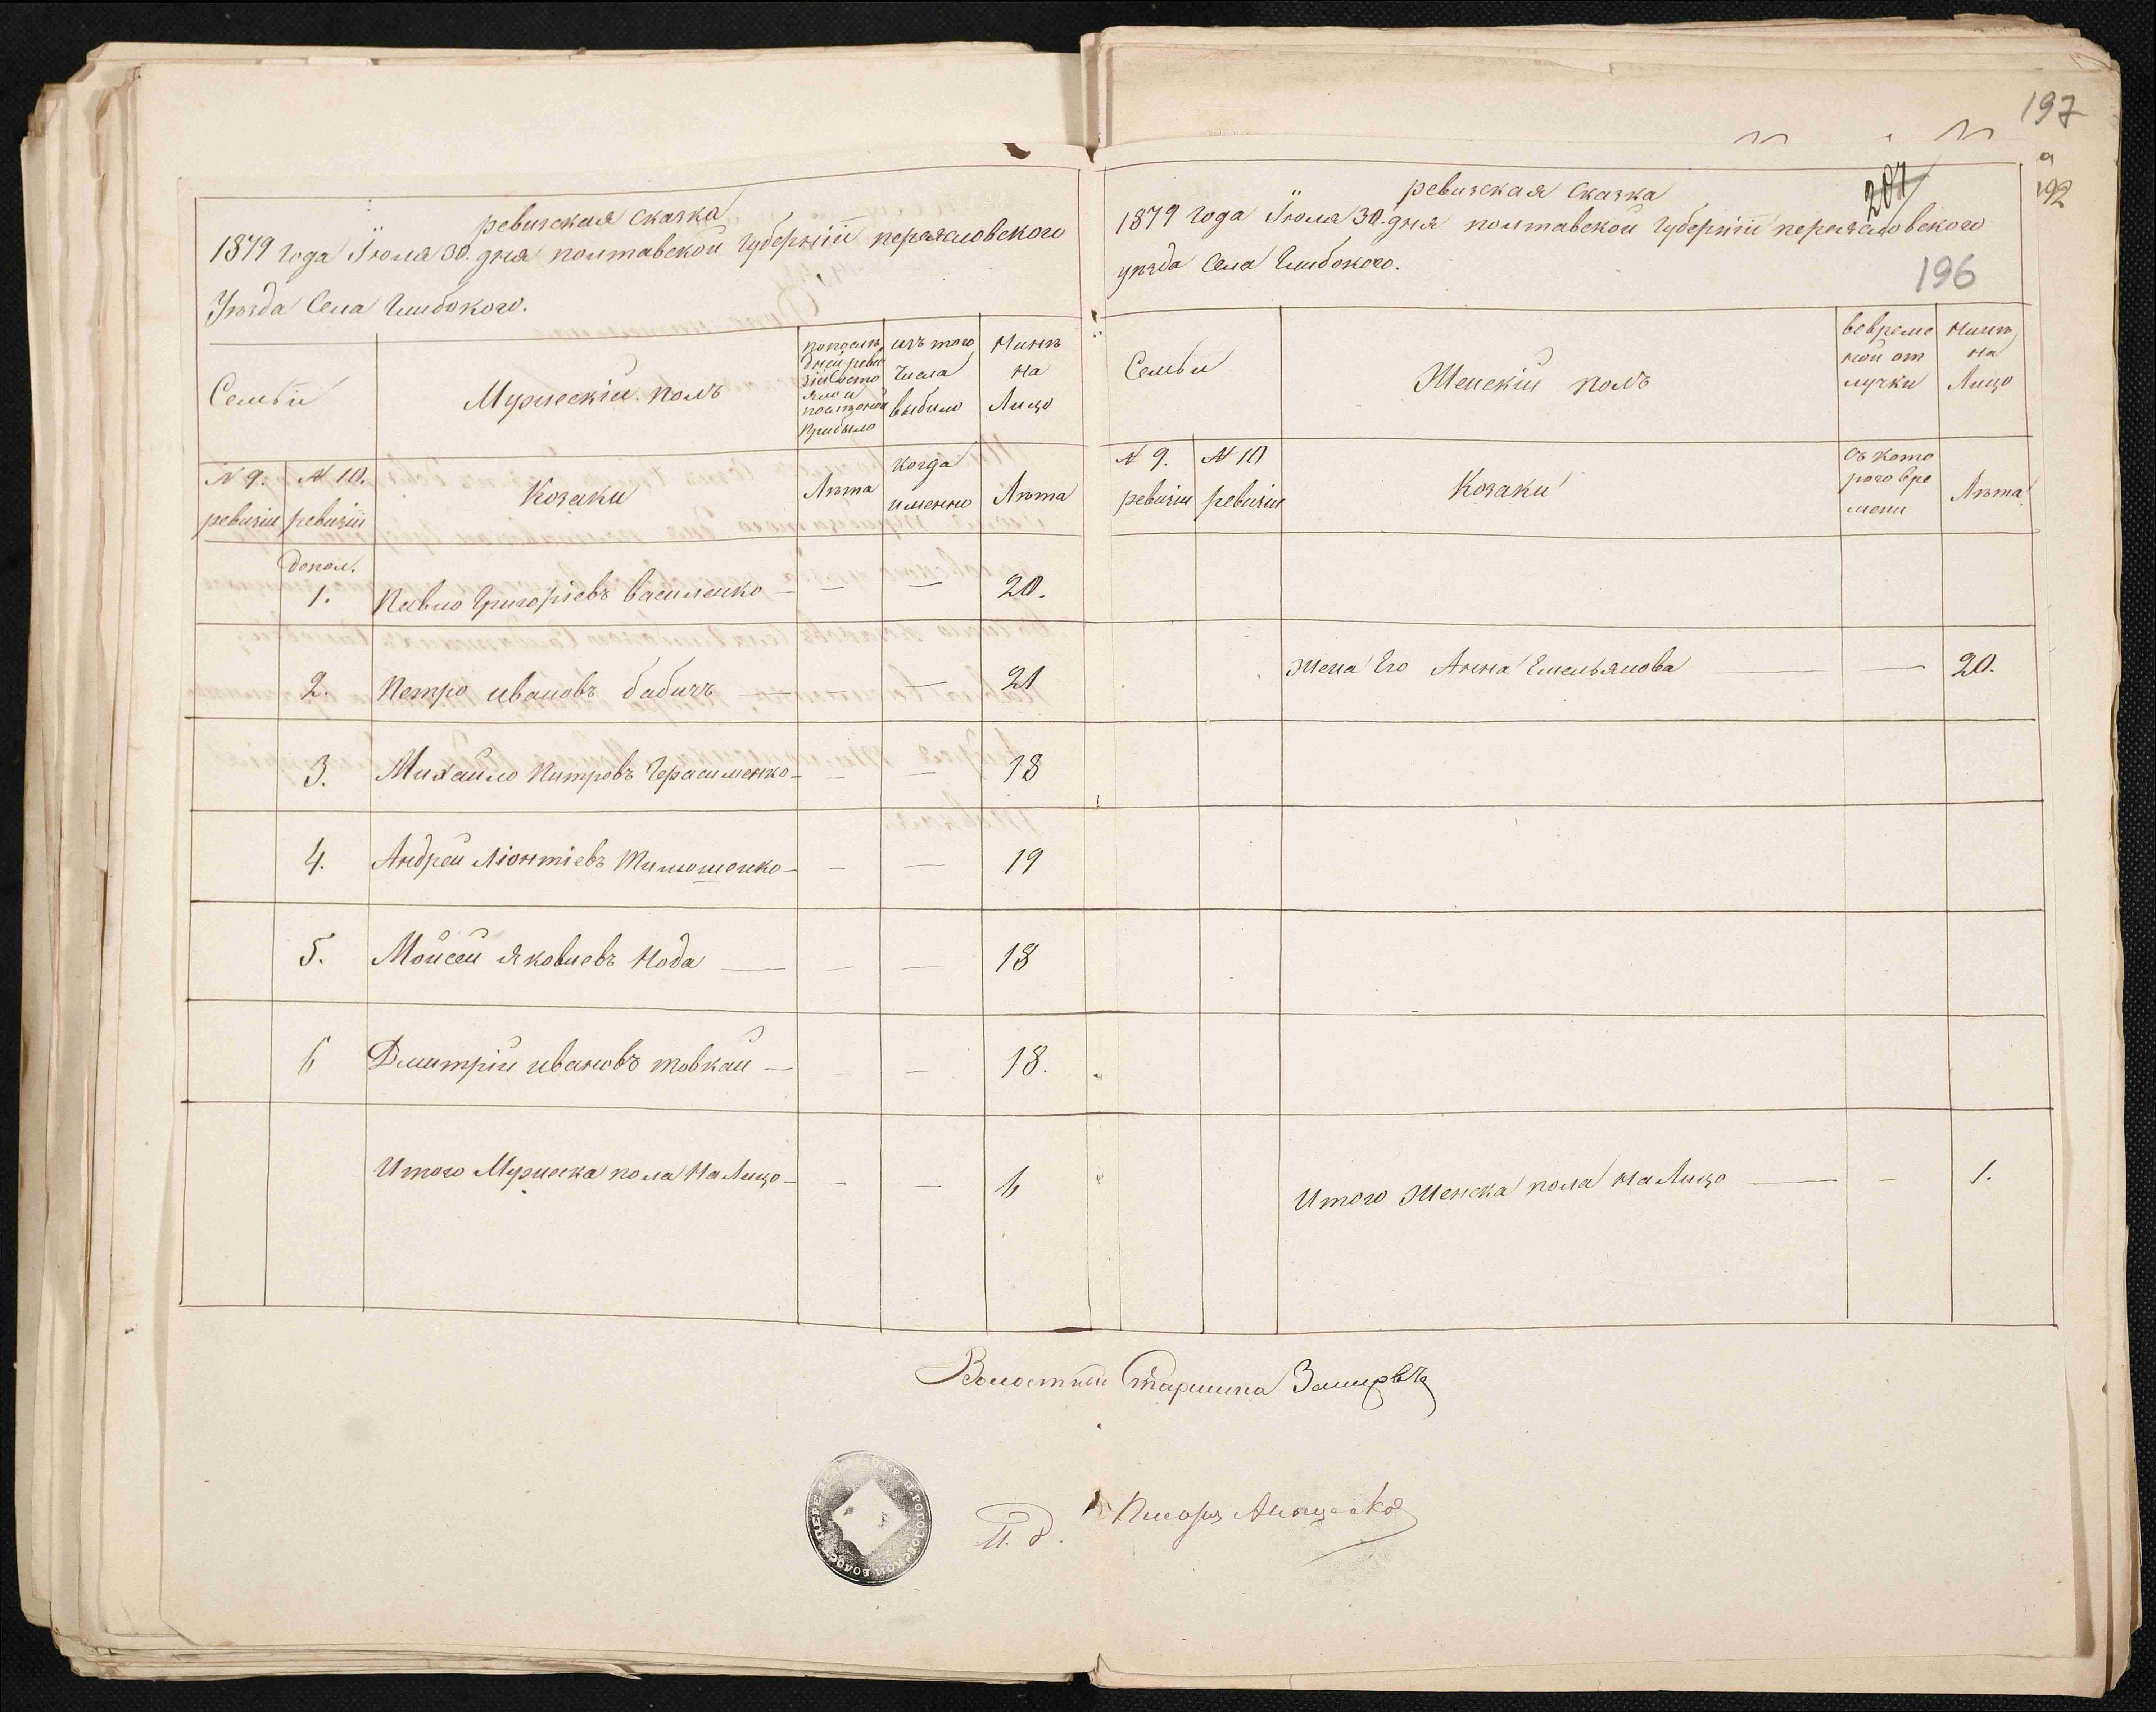 197
192
207
196
ревизская сказка
1879 года Іюля 30. дня полтавской губерніи переясловского
Уезда Села Глибокого.
Семьи
Мужескій полъ
изъ того
числа
выбыло
Нинѣ
на
Лицо
N 9.
ревизіи
N 10.
ревизіи
Козаки
Лѣта
когда
именно
Лѣта
допол.
1. Павло Григоріевъ василенко — — — 20.
2. Петро ивановъ бабичъ — — 21
3. Михайло Питровъ Герасименко — — — 18
4. Андрей Ліонтіевъ Тимошенко — — — 19
5. Мойсей яковлевъ Нода — — — 18
6 Дмитрій ивановъ товкач — — — 18.
Итого Мужеска пола На Лицо — — — 6
ревизская сказка
1879 года Іюля 30. дня полтавской губерніи переясловского
уезда Села Глибокого.
Семьи
Женскій полъ
вовреме
ной от
лучки
Нинѣ
на
Лицо
N 9.
ревизіи
N 10
ревизіи
Козаки
съ кото
рого вре
мени
Лѣта
жена Его Анна Емельянова — — 20.
Итого Женска пола на Лицо — — 1.
Волостный Старшина
И. д. Писаря